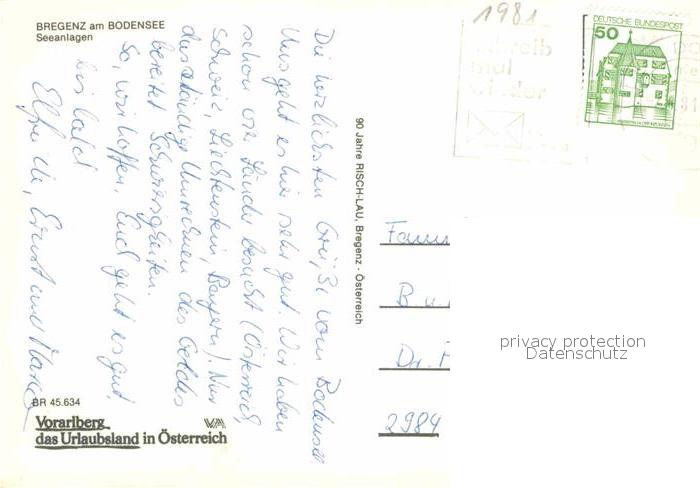 BREGENZ am BODENSEE
Seeanlagen
Die herzlichsten Grüße vom Bodensee
Uns geht es hier sehr gut. Wir haben
schon vier Länder besucht (Österreich,
Schweiz, Liechtenstein, Bayern). Nur
das ständige Umrechnen des Geldes
bereitet Schwierigkeiten.
So, wir hoffen, Euch geht es gut,
bis bald
Elfriede, Ernst und
BR 45.634
Vorarlberg
das Urlaubsland in Österreich
90 Jahre RISCH-LAU, Bregenz - Österreich
1981
schreib
mal
wieder
DEUTSCHE BUNDESPOST
50
Fam
B. u.
Dr.
2984
privacy protection
Datenschutz